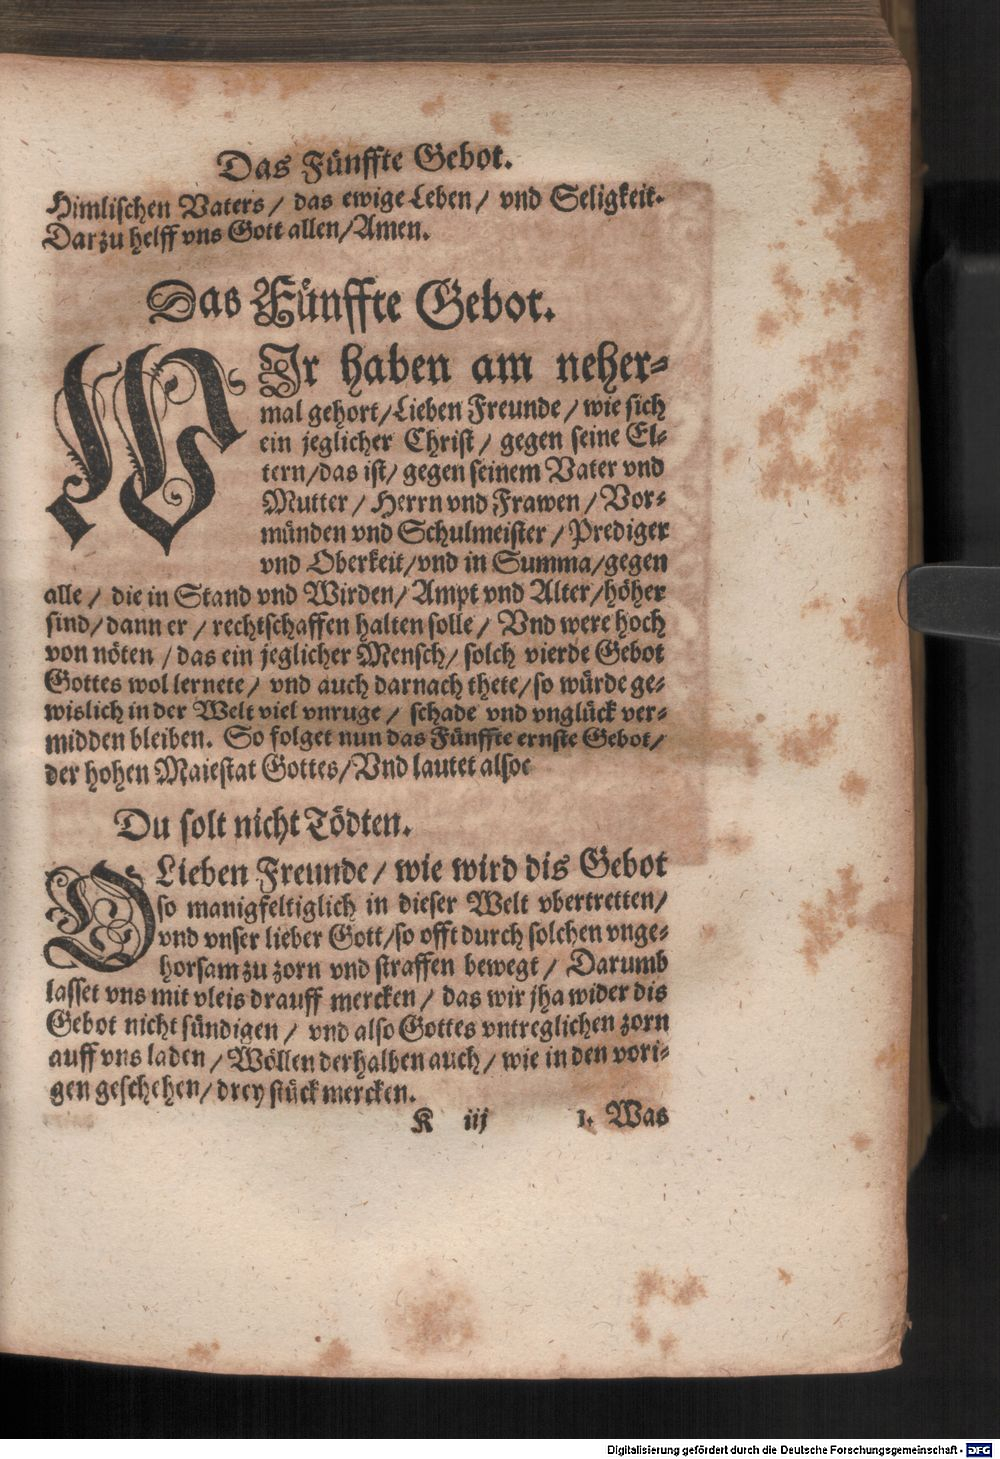 Das Fünffte Gebot.
Himlischen Vaters / das ewige Leben / vnd Seligkeit.
Darzu helff vns Gott allen / Amen.
Das Fünffte Gebot.
WIr haben am neher-
mal gehort / Lieben Freunde / wie sich
ein jeglicher Christ / gegen seine El-
tern / das ist / gegen seinem Vater vnd
Mutter / Herrn vnd Frawen / Vor-
münden vnd Schulmeister / Prediger
vnd Oberkeit / vnd in Summa / gegen
alle / die in Stand vnd Wirden / Ampt vnd Alter / höher
sind / dann er / rechtschaffen halten solle / Vnd were hoch
von nöten / das ein jeglicher Mensch / solch vierde Gebot
Gottes wol lernete / vnd auch darnach thete / so würde ge-
wislich in der Welt viel vnruge / schade vnd vnglück ver-
midden bleiben. So folget nun das Fünffte ernste Gebot /
der hohen Maiestat Gottes / Vnd lautet also:
Du solt nicht Tödten.
O Lieben Freunde / wie wird dis Gebot
so manigfeltiglich in dieser Welt vbertretten /
vnd vnser lieber Gott / so offt durch solchen vnge-
horsam zu zorn vnd straffen bewegt / Darumb
lasset vns mit vleis drauff mercken / das wir jha wider dis
Gebot nicht sündigen / vnd also Gottes vntreglichen zorn
auff vns laden / Wöllen derhalben auch / wie in den vori-
gen geschehen / drey stück mercken.
K iij 1. Was
Digitalisierung gefördert durch die Deutsche Forschungsgemeinschaft - DFG